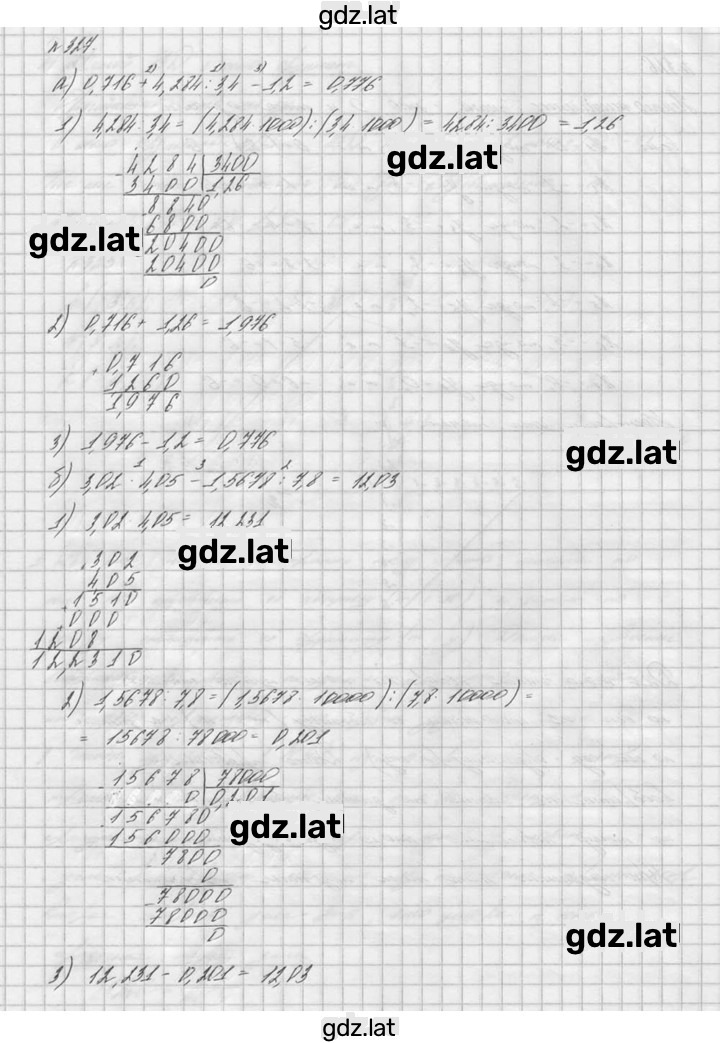 gdz.lat
№327.
а) 0,716 + 4,284 : 3,4 - 1,2 = 0,776
2) 1) 3)
1) 4,284 : 3,4 = (4,284·1000) : (3,4·1000) = 4284 : 3400 = 1,26
gdz.lat
4284 3400
3400 1,26
8840
gdz.lat
6800
20400
20400
0
2) 0,716 + 1,26 = 1,976
0,716
1260
1,976
3) 1,976 - 1,2 = 0,776
gdz.lat
1 3 2
б) 3,02 · 4,05 - 1,5678 : 7,8 = 12,03
1) 3,02 · 4,05 = 12 231
gdz.lat
302
405
1510
000
1208
12,2310
2) 1,5678 : 7,8 = (1,5678 · 10000) : (7,8 · 10000) =
= 15678 : 78000 = 0,201
15678 78000
0
156780
gdz.lat
156000
7800
0
78000
78000
0
gdz.lat
3) 12,231 - 0,201 = 12,03
gdz.lat